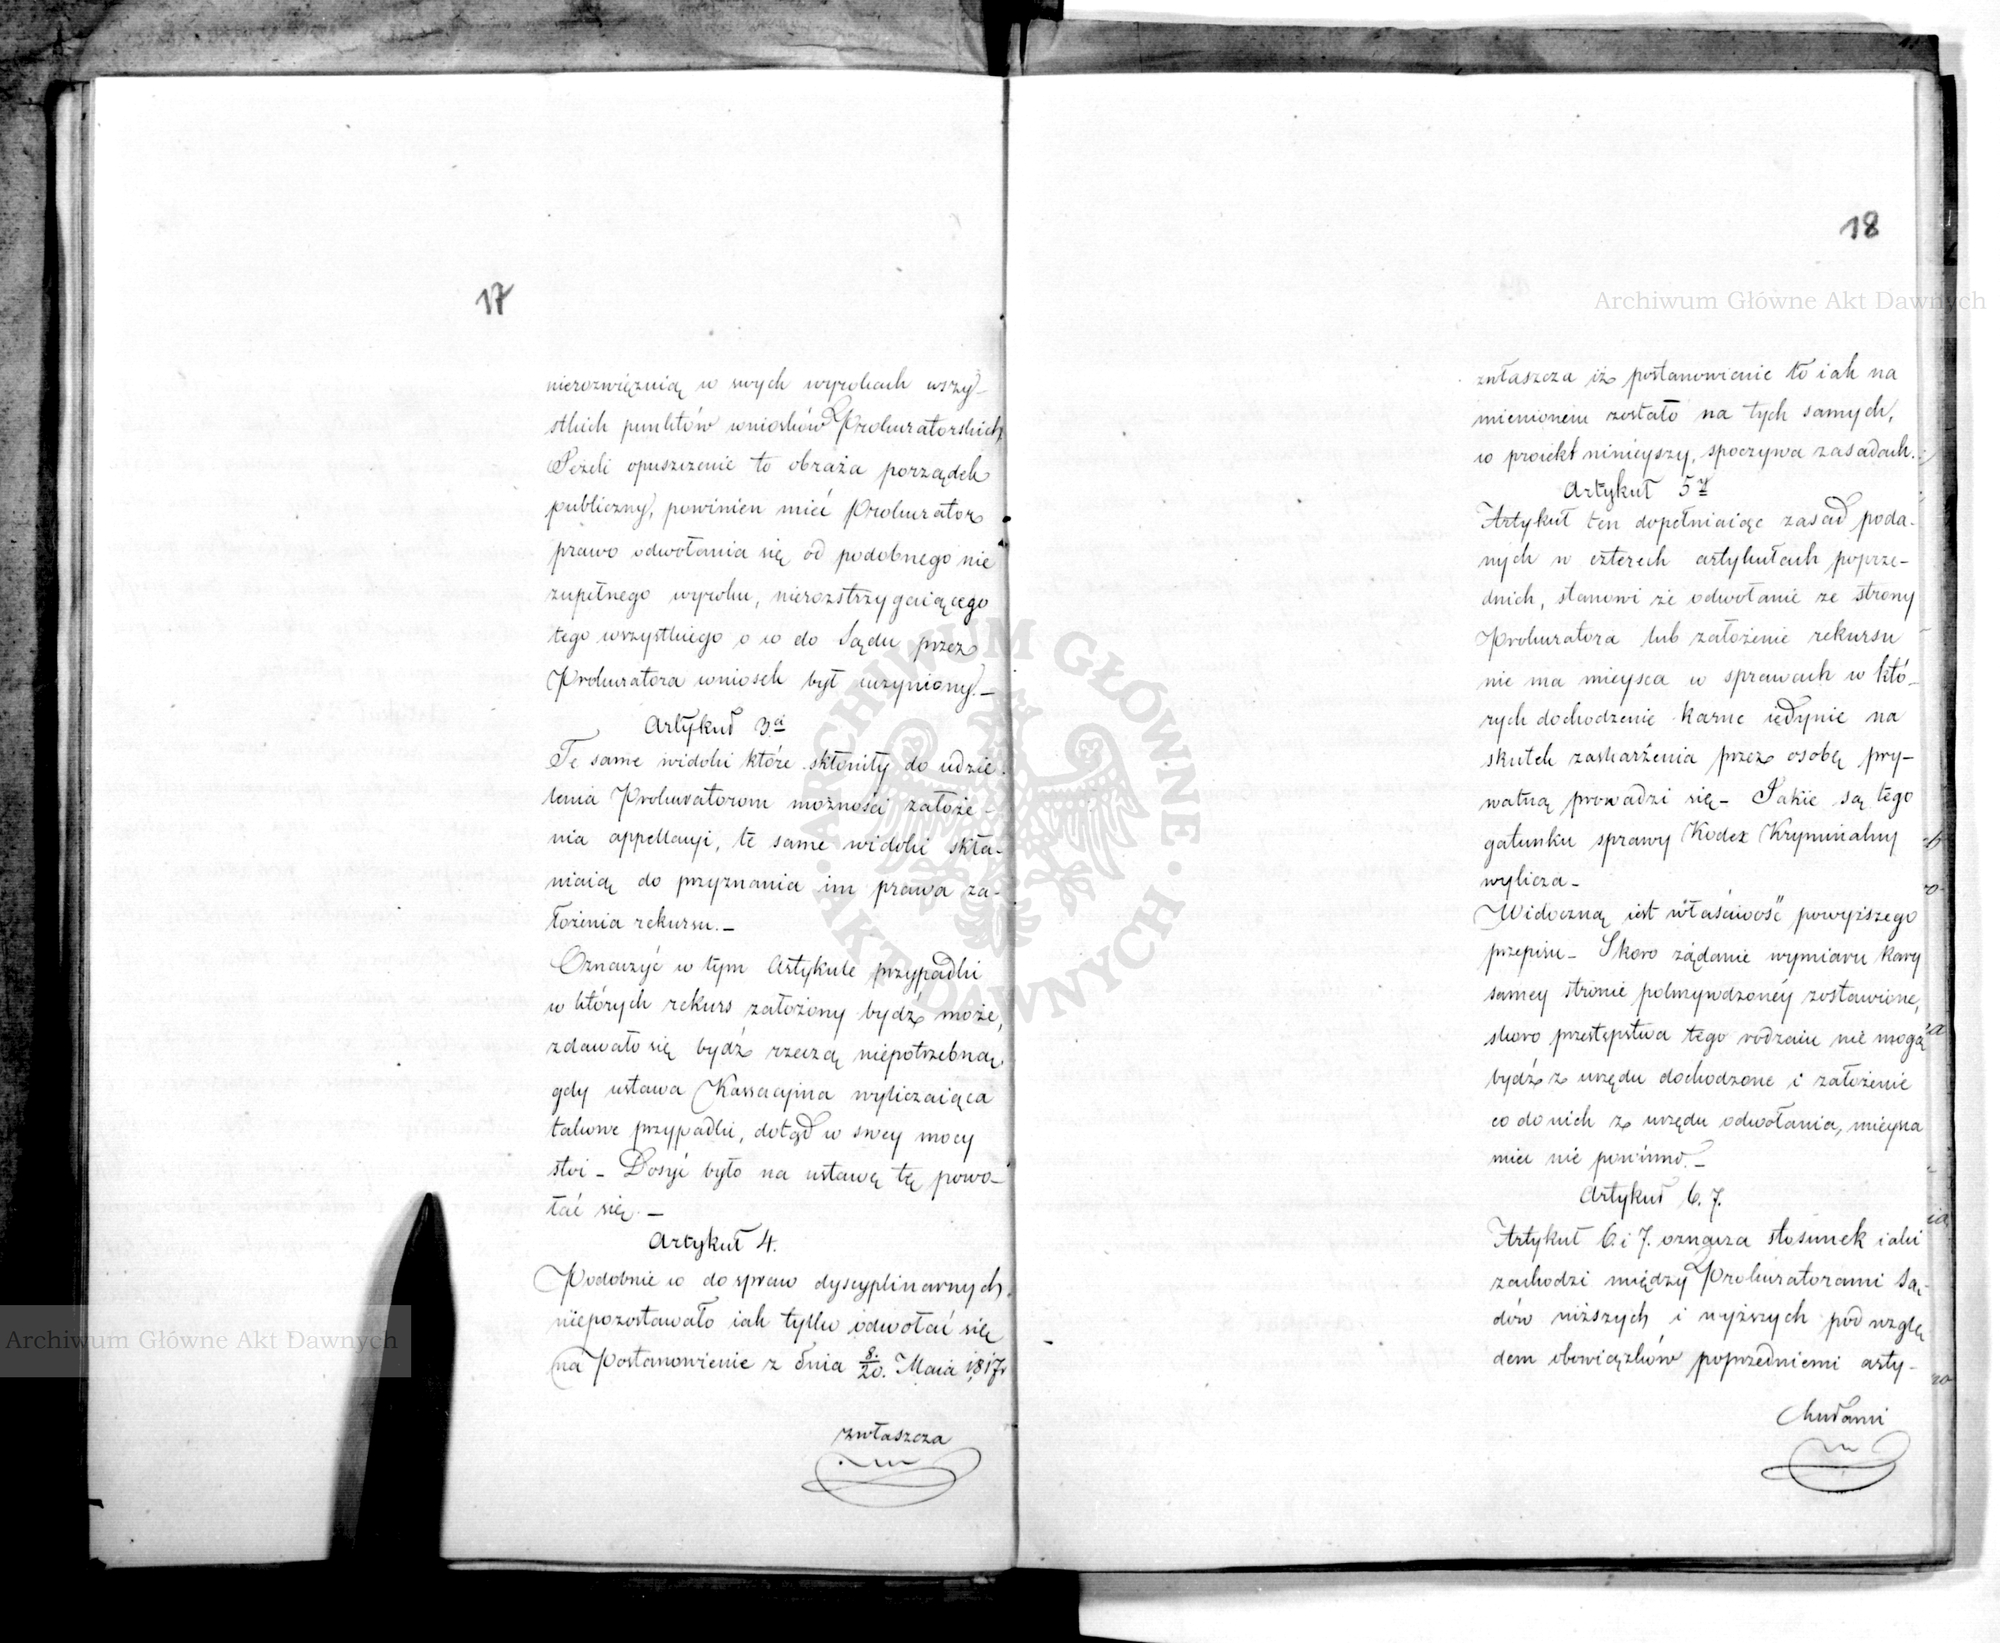 17
nierozwiężnią w swych wyrokach wszy-
stkich punktów wniosków Prokuratorskich.
Jeżeli opuszczenie to obraża porządek
publiczny, powinien mieć Prokurator
prawo odwołania się od podobnego nie
zupełnego wyroku, nierozstrzygaiącego
tego wszystkiego o co do Sądu przez
Prokuratora wniosek był uczyniony.-
Artykuł 3ci
Te same widoki które skłoniły do udzie-
lenia Prokuratorom możności założe-
nia appellacyi, te same widoki skła-
niaią do przyznania im prawa za-
łożenia rekursu.-
Oznaczyć w tym Artykule przypadki
w których rekurs założony bydź może,
zdawało się bydź rzeczą niepotrzebną,
gdy ustawa Kassacyjna wyliczaiąca
takowe przypadki, dotąd w swey mocy
stoi - Dosyć było na ustawę tę powo-
łać się.-
Artykuł 4.
Podobnie co do spraw dyscyplinarnych,
niepozostawało iak tylko odwołać się
na Postanowienie z dnia 8/20. Maia 1817r
zwłaszcza
18
zwłaszcza iż postanowienie to iak na
mienionem zostało na tych samych,
co proiekt ninieyszy, spoczywa zasadach.
Artykuł 5ty
Artykuł ten dopełniaiąc zasad poda-
nych w czterech artykułach poprze-
dnich, stanowi że odwołanie ze strony
Prokuratora lub założenie rekursu
nie ma mieysca w sprawach w któ-
rych dochodzenie karne iedynie na
skutek zaskarżenia przez osobę pry-
watną prowadzi się - Jakie są tego
gatunku sprawy Kodex Kryminalny
wylicza -
Widoczną iest właściwość powyższego
przepisu - Skoro żądanie wymiaru kary
samey stronie pokrzywdzoney zostawione,
skoro przestępstwa tego rodzaiu nie mogą
bydź z urzędu dochodzone i założenie
co do nich z urzędu odwołania, mieysca
mieć nie powinno.-
Artykuł 6. 7.
Artykuł 6. i 7. oznacza stosunek iaki
zachodzi między Prokuratorami Są-
dów niższych i wyższych pod wzglę
dem obowiązków poprzedniemi arty-
kułami
Archiwum Główne Akt Dawnych
Archiwum Główne Akt Dawnych
ARCHIWUM GŁÓWNE AKT DAWNYCH